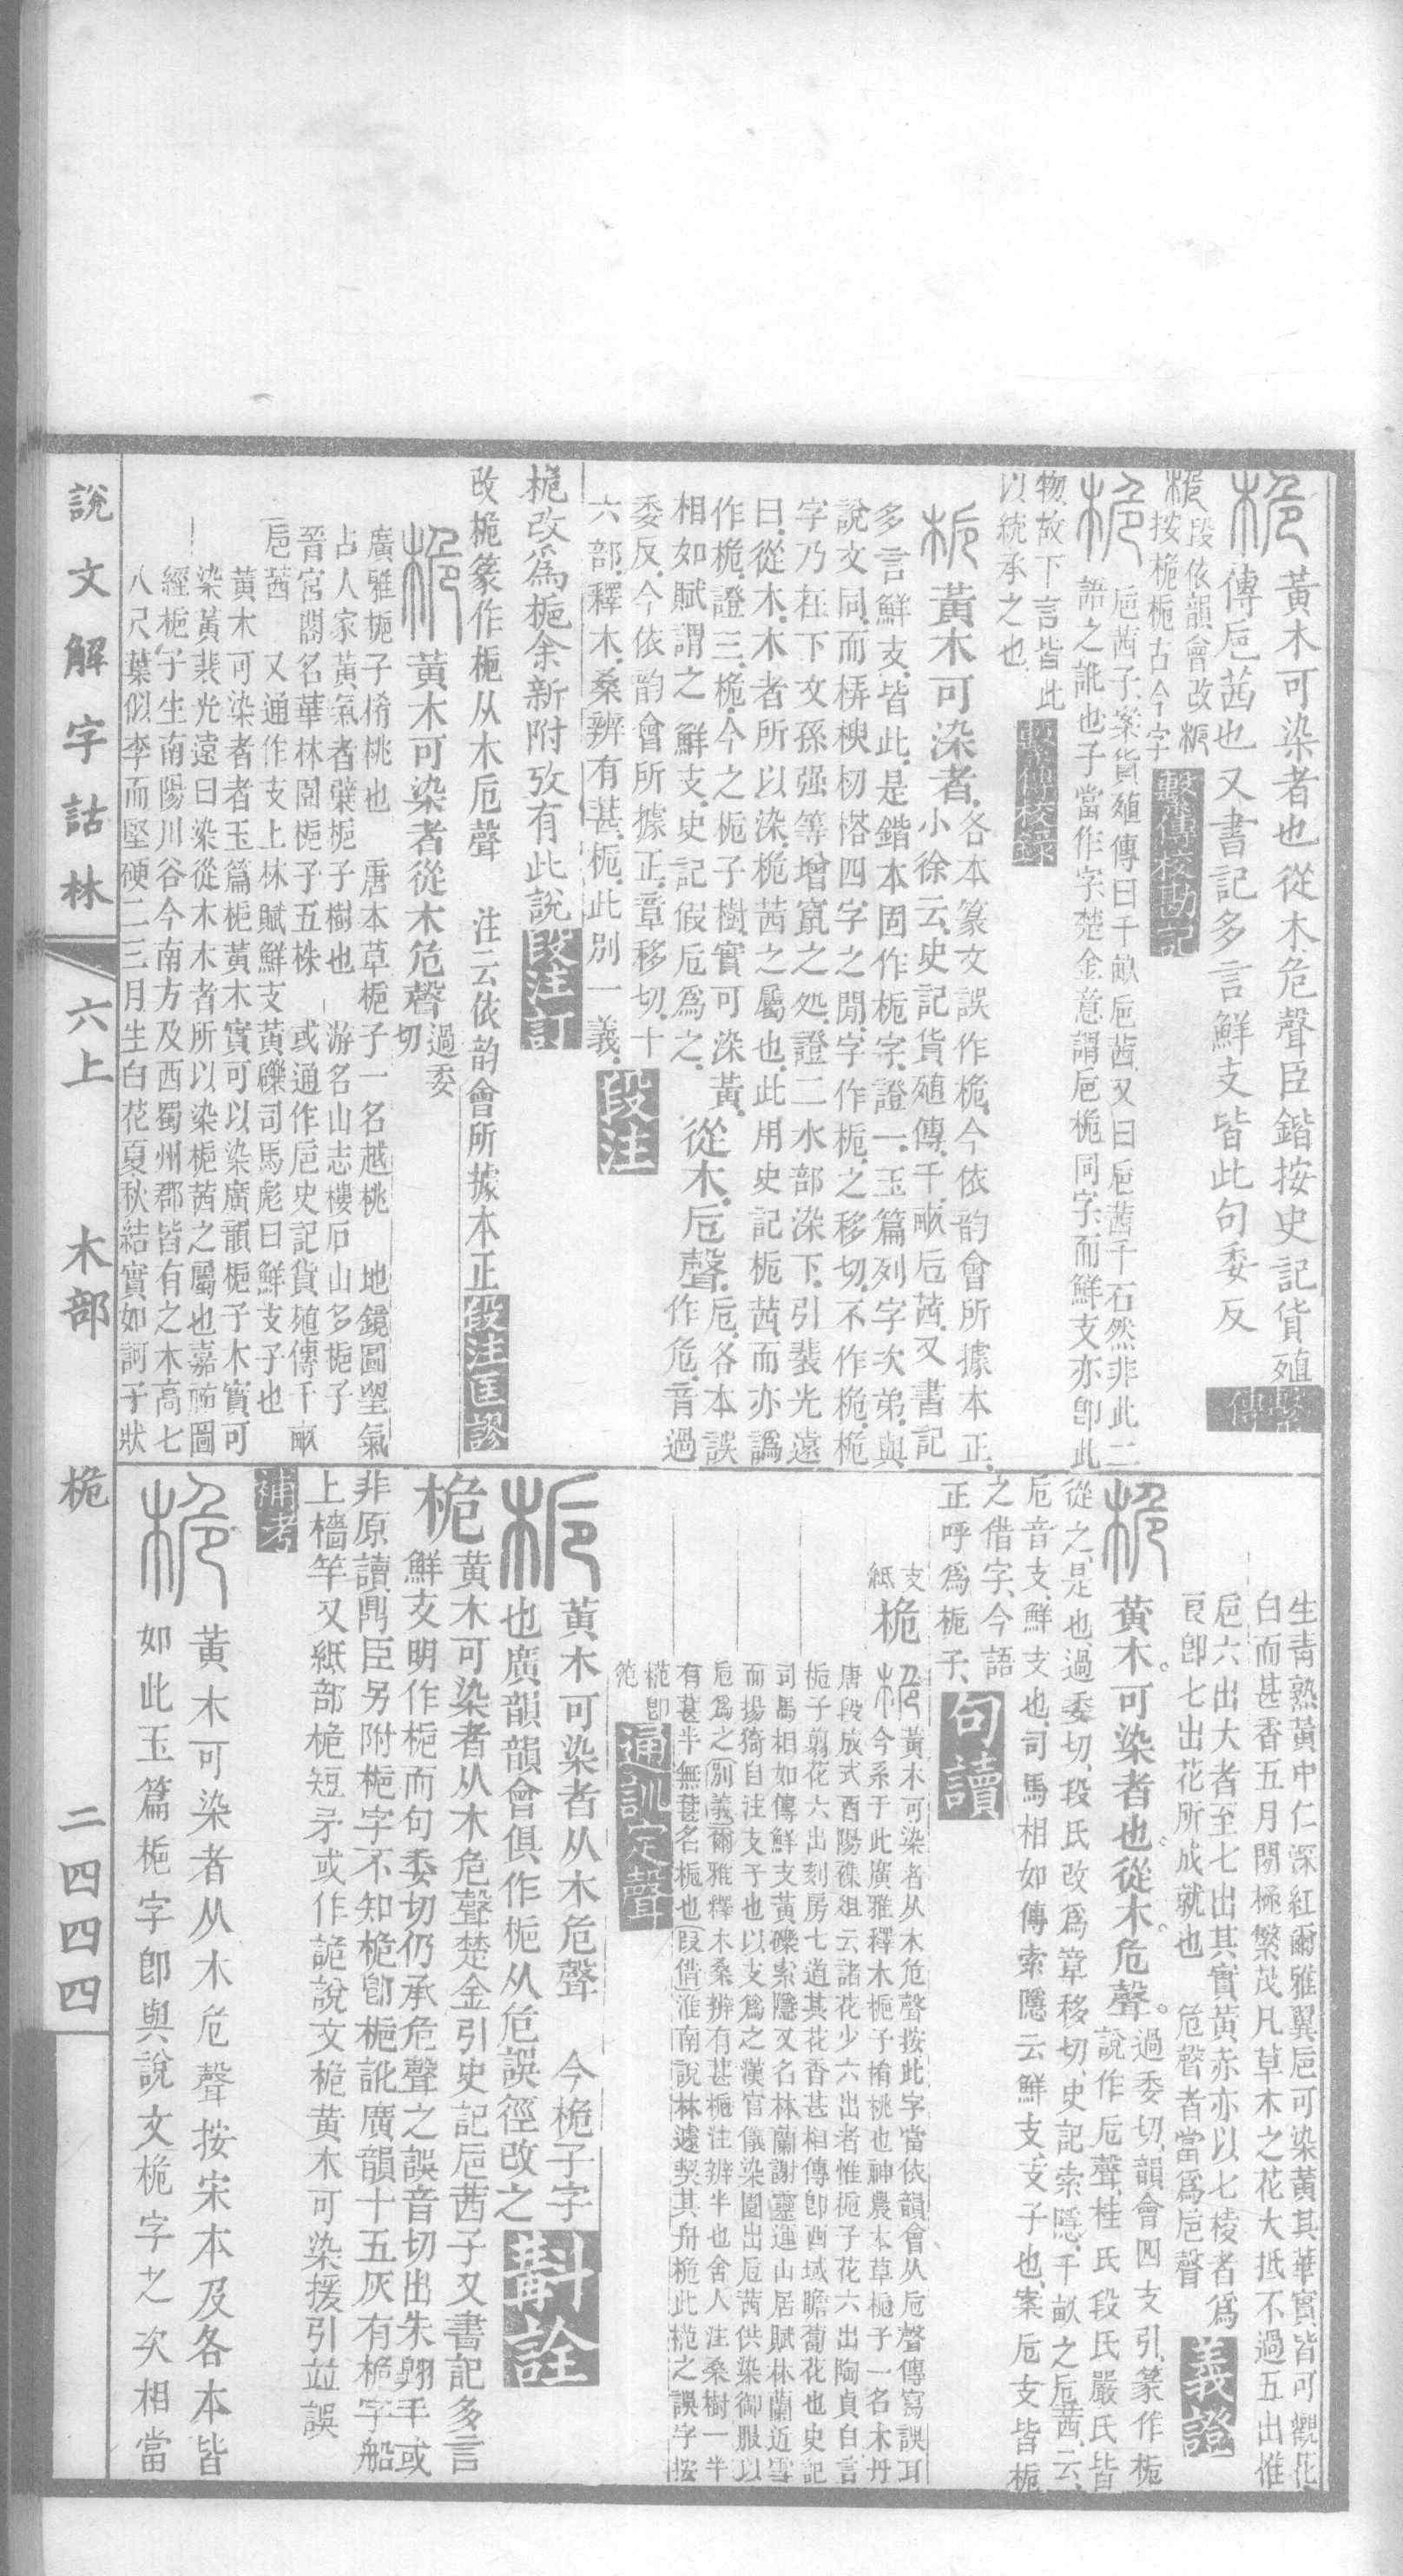 黃木可染者也從木危聲臣鍇按史記貨殖
傳巵茜也又書記多言鮮支皆此句委反
繫傳
段依韻會改
按桅梔古今字
繫傳校勘記
巵茜子案貨殖傳曰千畝巵茜又曰巵茜千石然非此二
語之訛也子當作字楚金意謂巵桅同字而鮮支亦卽此
物故下言皆此
以統承之也
繫傳校錄
黃木可染者各本篆文誤作桅今依韵會所據本正
小徐云史記貨殖傳千畝巵茜又書記
多言鮮支皆此是鍇本固作梔字證一玉篇列字次弟與
說文同而栟椶杒榙四字之閒字作梔之移切不作桅桅
字乃在下文孫强等增竄之処證二水部染下引裴光遠
曰從木木者所以染桅茜之屬也此用史記梔茜而亦譌
作桅證三桅今之梔子樹實可染黃
相如賦謂之鮮支史記假巵爲之
從木巵聲
巵各本誤
作危音過
委反今依韵會所據正章移切十
六部釋木桑辨有葚梔此別一義
段注
桅改爲梔余新附攷有此說
段注訂
改桅篆作梔从木巵聲 注云依韵會所據本正
段注匡謬
黃木可染者從木危聲過委切
廣雅梔子桶桃也 唐本草梔子一名越桃 地鏡圖望氣
占人家黃氣者蘗梔子樹也 游名山志樓石山多梔子
晉宮閣名華林園梔子五株 或通作巵史記貨殖傳千畝
巵茜 又通作支上林賦鮮支黃礫司馬彪曰鮮支支子也
黃木可染者者玉篇梔黃木實可以染廣韻梔子木實可
染黃裴光遠曰染從木木者所以染梔茜之屬也嘉祐圖
經梔子生南陽川谷今南方及西蜀州郡皆有之木高七
八尺葉似李而堅硬二三月生白花夏秋結實如訶子狀
生青熟黃中仁深紅爾雅翼巵可染黃其華實皆可觀花
白而甚香五月閒極繁茂凡草木之花大抵不過五出惟
巵六出大者至七出其實黃赤亦以七棱者爲
良卽七出花所成就也 危聲者當爲巵聲
義證
黃木可染者也從木危聲
過委切韻會四支引篆作梔
說作巵聲桂氏段氏嚴氏皆
從之是也過委切段氏改爲章移切史記索隱千畝之巵茜云
巵音支鮮支也司馬相如傳索隱云鮮支支子也案巵支皆梔
之借字今語
正呼爲梔子
句讀
支
紙
桅
黃木可染者从木危聲按此字當依韻會从巵聲傳寫誤耳
今系于此廣雅釋木梔子桶桃也神農本草梔子一名木丹
唐段成式酉陽雜俎云諸花少六出者惟梔子花六出陶貞白言
梔子翦花六出刻房七道其花香甚相傳卽西域瞻蔔花也史記
司馬相如傳鮮支黃礫索隱又名林蘭謝靈運山居賦林蘭近雪
而揚猗自注支子也以支爲之漢官儀染園出巵茜供染御服以
巵爲之別義爾雅釋木桑辨有葚梔注辨半也舍人注桑樹一半
有葚半無葚名梔也叚借淮南說林遽契其舟桅此㮄之誤字按
通訓定聲
黃木可染者从木危聲 今桅子字
也廣韻韻會俱作梔从危誤徑改之
斠詮
桅
黃木可染者从木危聲楚金引史記巵茜子又書記多言
鮮支明作梔而句委切仍承危聲之誤音切出朱翱手或
非原讀鼎臣另附梔字不知桅卽梔訛廣韻十五灰有桅字船
上檣竿又紙部桅短矛或作䤥說文桅黃木可染援引竝誤
補考
黃木可染者从木危聲按宋本及各本皆
如此玉篇梔字卽與說文桅字之次相當
說文解字詁林
六上
木部
桅
二四四四